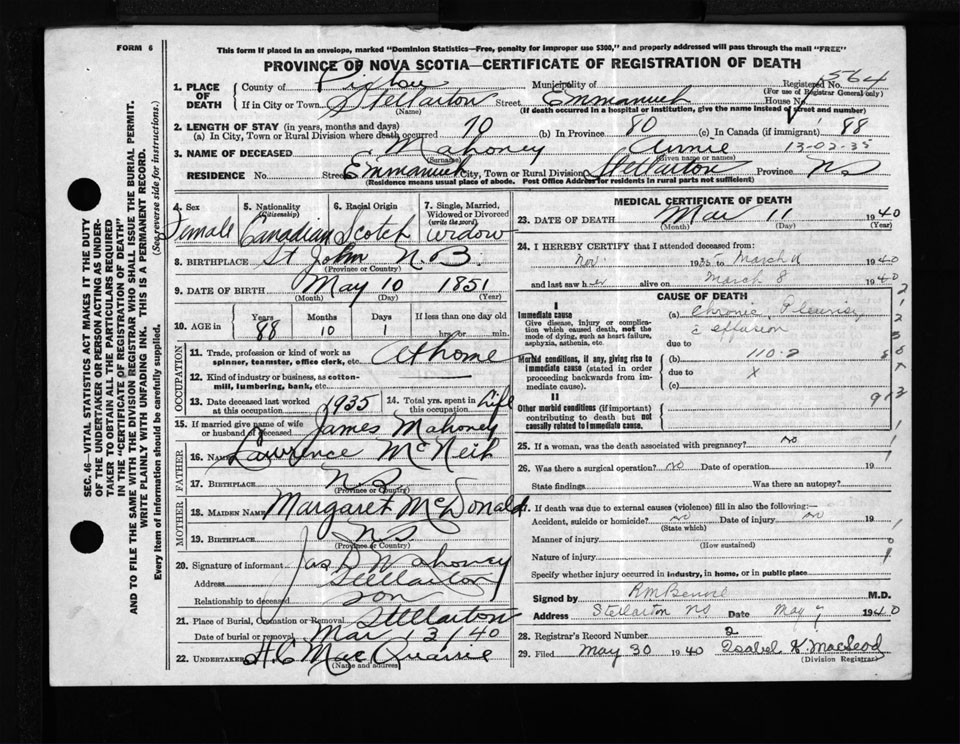 FORM 6
This form if placed in an envelope, marked "Dominion Statistics—Free, penalty for improper use $300," and properly addressed will pass through the mail "FREE"
PROVINCE OF NOVA SCOTIA—CERTIFICATE OF REGISTRATION OF DEATH
SEC. 46—VITAL STATISTICS ACT MAKES IT THE DUTY
OF THE UNDERTAKER OR PERSON ACTING AS UNDER-
TAKER TO OBTAIN ALL THE PARTICULARS REQUIRED
IN THE "CERTIFICATE OF REGISTRATION OF DEATH"
AND TO FILE THE SAME WITH THE DIVISION REGISTRAR WHO SHALL ISSUE THE BURIAL PERMIT.
WRITE PLAINLY WITH UNFADING INK. THIS IS A PERMANENT RECORD.
Every item of Information should be carefully supplied. (See reverse side for instructions.)
1. PLACE OF DEATH
County of Pictou Municipality of Registered No. 1564
(For use of Registrar General only)
If in City or Town Stellarton Street House No.
(Name) (If death occurred in a hospital or institution, give the name instead of street and number)
2. LENGTH OF STAY (in years, months and days)
(a) In City, Town or Rural Division where death occurred 70 (b) In Province 80 (c) In Canada (if immigrant) 88
3. NAME OF DECEASED Mahoney Annie 13-02-35
(Surname) (Given name or names)
RESIDENCE No. Street City, Town or Rural Division Stellarton Province NS
(Residence means usual place of abode. Post Office Address for residents in rural parts not sufficient)
4. Sex Female
5. Nationality (Citizenship) Canadian
6. Racial Origin Scotch
7. Single, Married, Widowed or Divorced (write the word) widow
8. BIRTHPLACE St John N.B.
(Province or Country)
9. DATE OF BIRTH May 10 1851
(Month) (Day) (Year)
10. AGE in Years Months Days If less than one day
88 10 1 hrs. or min.
OCCUPATION
11. Trade, profession or kind of work as spinner, teamster, office clerk, etc. At home
12. Kind of industry or business, as cotton-mill, lumbering, bank, etc.
13. Date deceased last worked at this occupation 1935 14. Total yrs. spent in this occupation Life
15. If married give name of wife or husband of deceased James Mahoney
FATHER
16. NAME Lawrence McNeil
17. BIRTHPLACE NS
(Province or Country)
MOTHER
18. MAIDEN NAME Margaret McDonald
19. BIRTHPLACE NS
(Province or Country)
20. Signature of informant Jas D Mahoney
Address Stellarton
Relationship to deceased son
21. Place of Burial, Cremation or Removal Stellarton
Date of burial or removal Mar 13/40
22. UNDERTAKER H.C MacQuarrie
(Name and address)
MEDICAL CERTIFICATE OF DEATH
23. DATE OF DEATH Mar 11 1940
(Month) (Day) (Year)
24. I HEREBY CERTIFY that I attended deceased from:
Nov. 1935 to March 11 1940
and last saw her alive on March 8 1940
CAUSE OF DEATH
I
Immediate cause
Give disease, injury or complication which caused death, not the mode of dying, such as heart failure, asphyxia, asthenia, etc.
(a) Chronic Pleurisy
c effusion
due to
Morbid conditions, if any, giving rise to immediate cause (stated in order proceeding backwards from immediate cause).
(b) 110-2
due to X
(c)
II
Other morbid conditions (if important) contributing to death but not causally related to immediate cause.
25. If a woman, was the death associated with pregnancy? no
26. Was there a surgical operation? no Date of operation 19
State findings Was there an autopsy?
27. If death was due to external causes (violence) fill in also the following:—
Accident, suicide or homicide? no Date of injury no 19
(State which)
Manner of injury
(How sustained)
Nature of injury
Specify whether injury occurred in industry, in home, or in public place
Signed by M.D.
Address Stellarton NS Date May 7 1940
28. Registrar's Record Number 2
29. Filed May 30 1940 Isabel K. MacLeod
(Division Registrar)